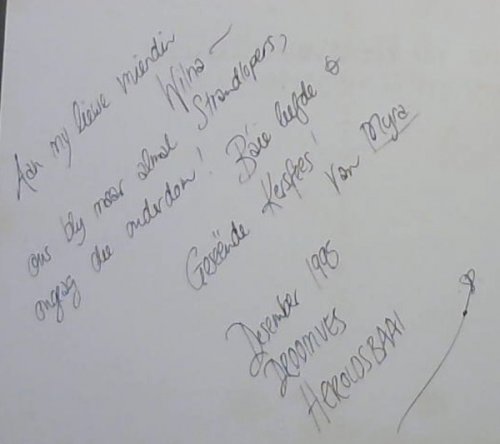 Aan my liewe vriendin
Wilna —
ons bly maar almal Strandlopers,
ongeag die ouderdom! Báie liefde &
Geseënde Kersfees!
Van Myra
Desember 1995
DROOMVES
HEROLDSBAAI